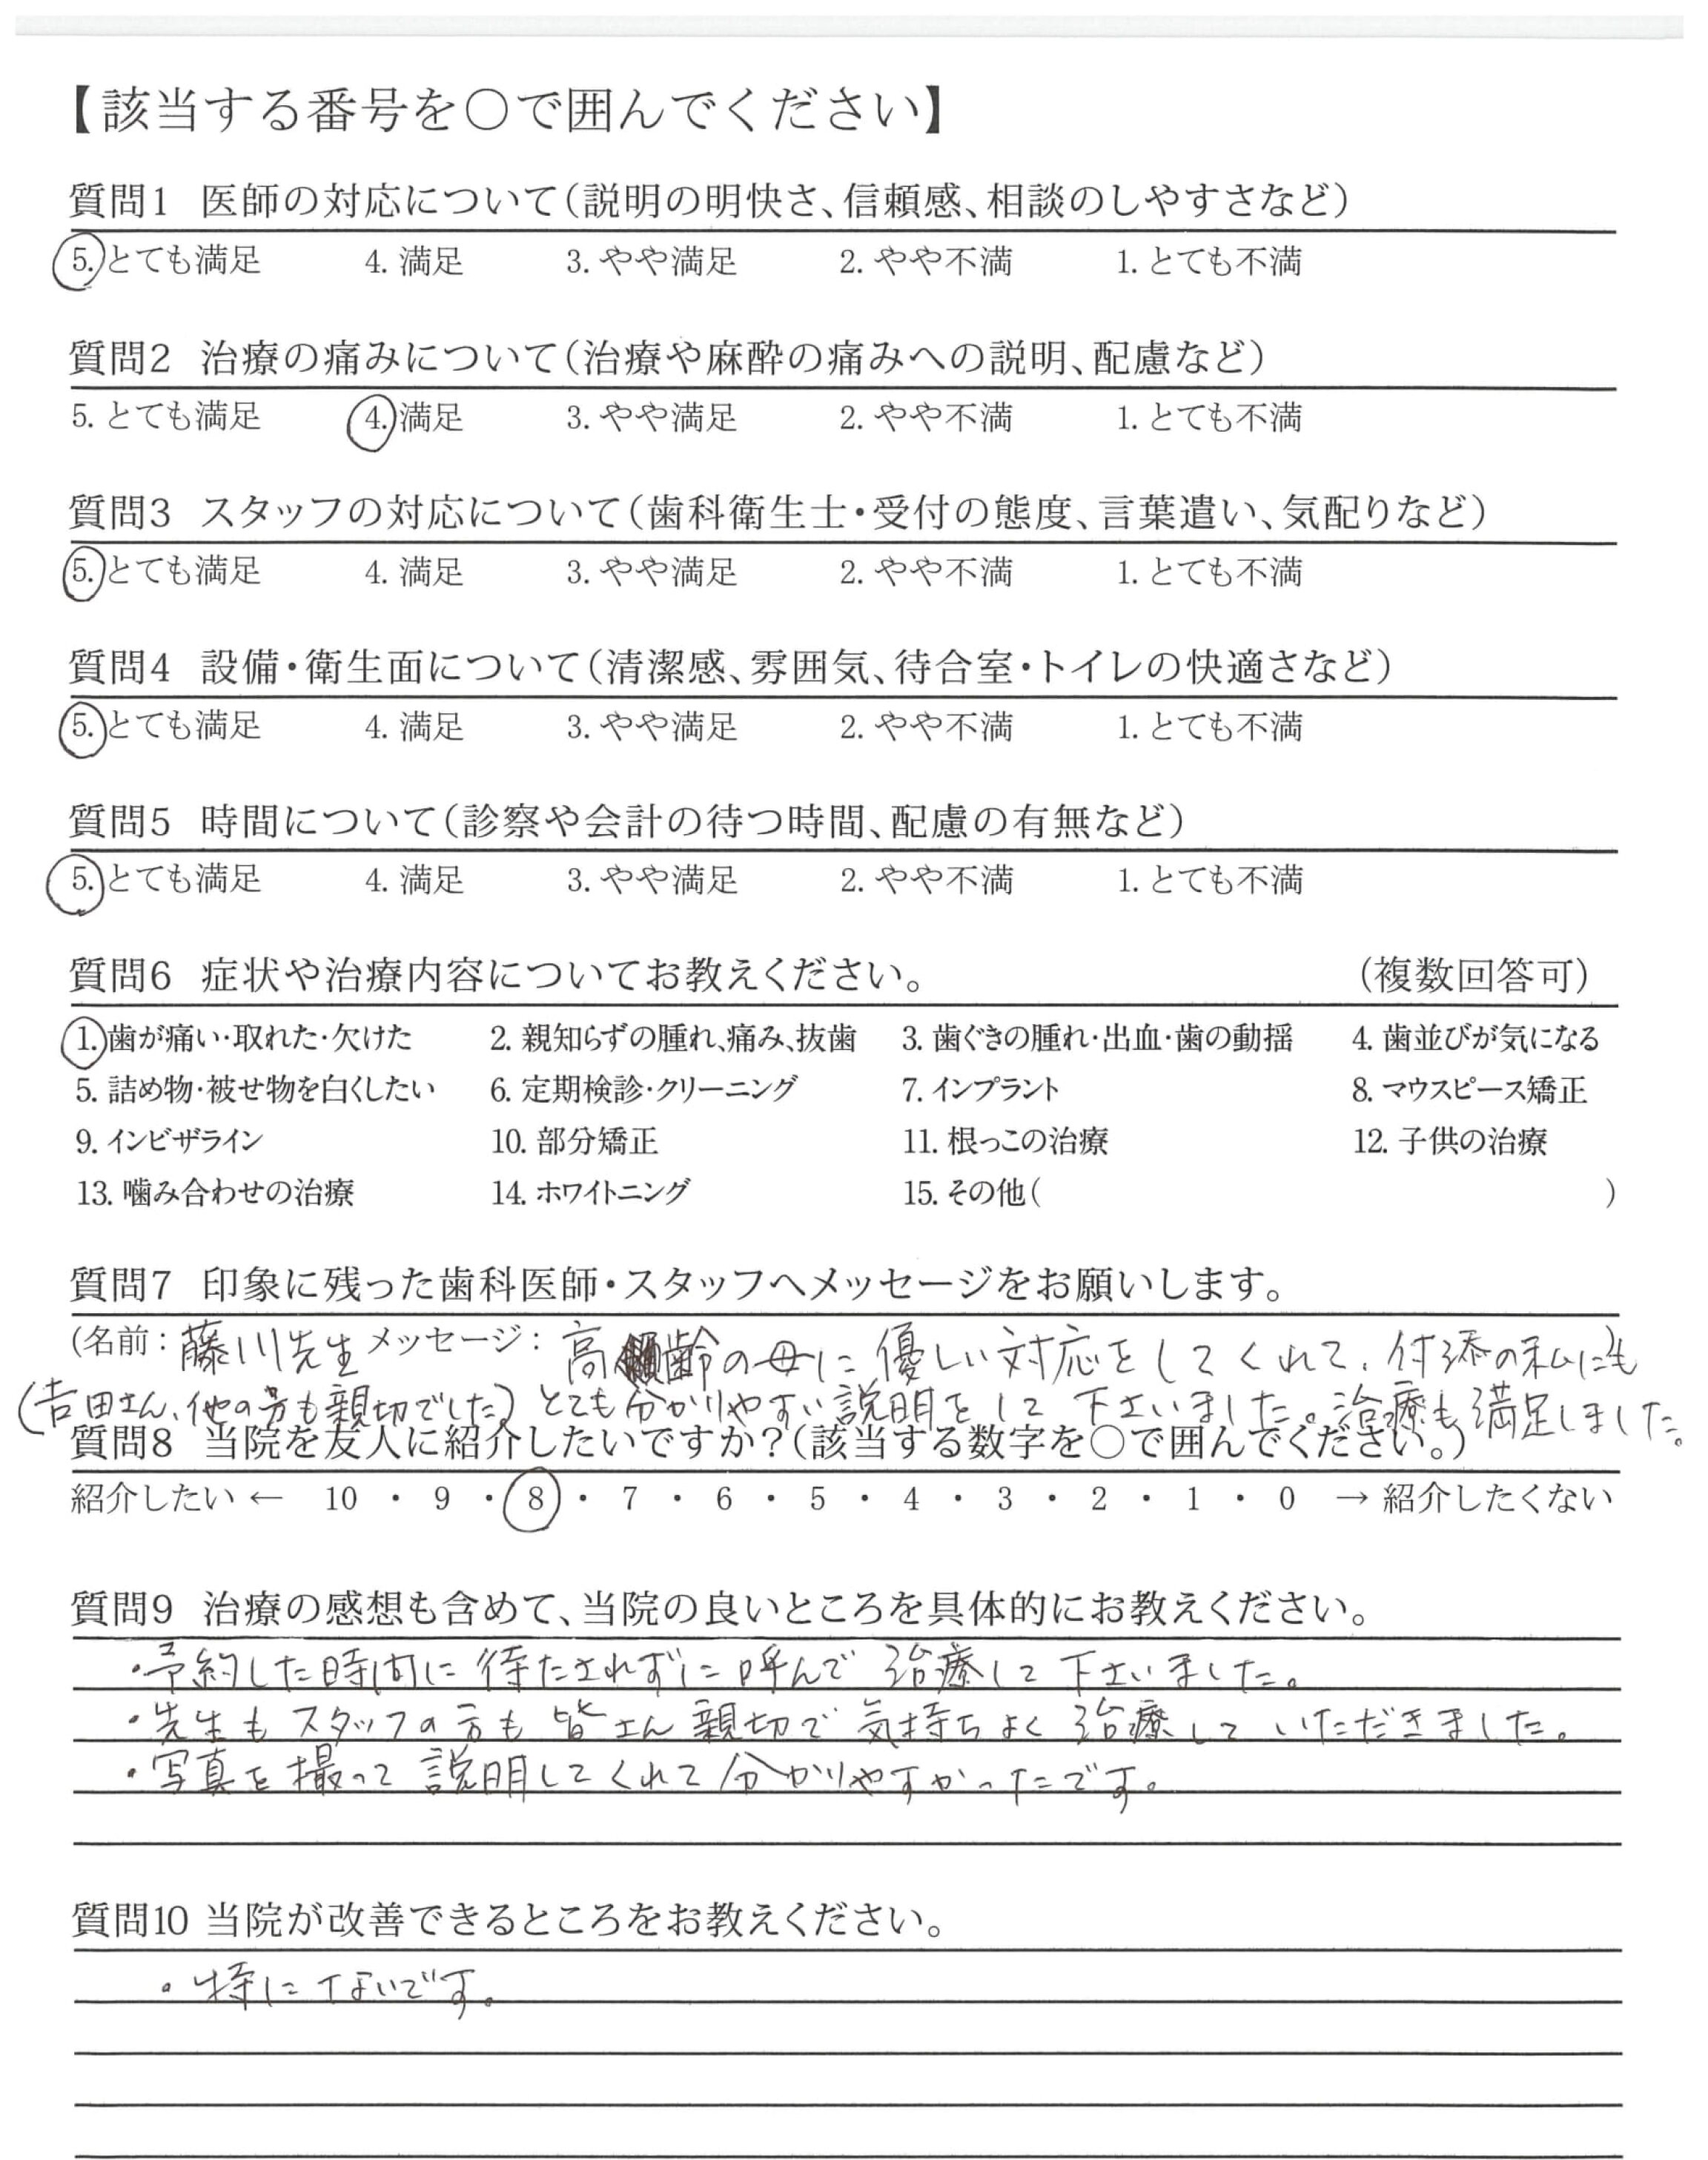 【該当する番号を○で囲んでください】
質問1 医師の対応について（説明の明快さ、信頼感、相談のしやすさなど）
5. とても満足 4. 満足 3. やや満足 2. やや不満 1. とても不満
質問2 治療の痛みについて（治療や麻酔の痛みへの説明、配慮など）
5. とても満足 4. 満足 3. やや満足 2. やや不満 1. とても不満
質問3 スタッフの対応について（歯科衛生士・受付の態度、言葉遣い、気配りなど）
5. とても満足 4. 満足 3. やや満足 2. やや不満 1. とても不満
質問4 設備・衛生面について（清潔感、雰囲気、待合室・トイレの快適さなど）
5. とても満足 4. 満足 3. やや満足 2. やや不満 1. とても不満
質問5 時間について（診察や会計の待つ時間、配慮の有無など）
5. とても満足 4. 満足 3. やや満足 2. やや不満 1. とても不満
質問6 症状や治療内容についてお教えください。 （複数回答可）
1. 歯が痛い・取れた・欠けた 2. 親知らずの腫れ、痛み、抜歯 3. 歯ぐきの腫れ・出血・歯の動揺 4. 歯並びが気になる
5. 詰め物・被せ物を白くしたい 6. 定期検診・クリーニング 7. インプラント 8. マウスピース矯正
9. インビザライン 10. 部分矯正 11. 根っこの治療 12. 子供の治療
13. 噛み合わせの治療 14. ホワイトニング 15. その他（ ）
質問7 印象に残った歯科医師・スタッフへメッセージをお願いします。
（名前：藤川先生 メッセージ：高齢の母に優しい対応をしてくれて、付添の私にも）
（吉田さん、他の方も親切でした）とても分かりやすい説明をして下さいました。治療も満足しました。
質問8 当院を友人に紹介したいですか？（該当する数字を○で囲んでください。）
紹介したい ← 10 ・ 9 ・ 8 ・ 7 ・ 6 ・ 5 ・ 4 ・ 3 ・ 2 ・ 1 ・ 0 → 紹介したくない
質問9 治療の感想も含めて、当院の良いところを具体的にお教えください。
・予約した時間に待たされずに呼んで治療して下さいました。
・先生もスタッフの方も皆さん親切で気持ちよく治療していただきました。
・写真を撮って説明してくれて分かりやすかったです。
質問10 当院が改善できるところをお教えください。
・特にないです。